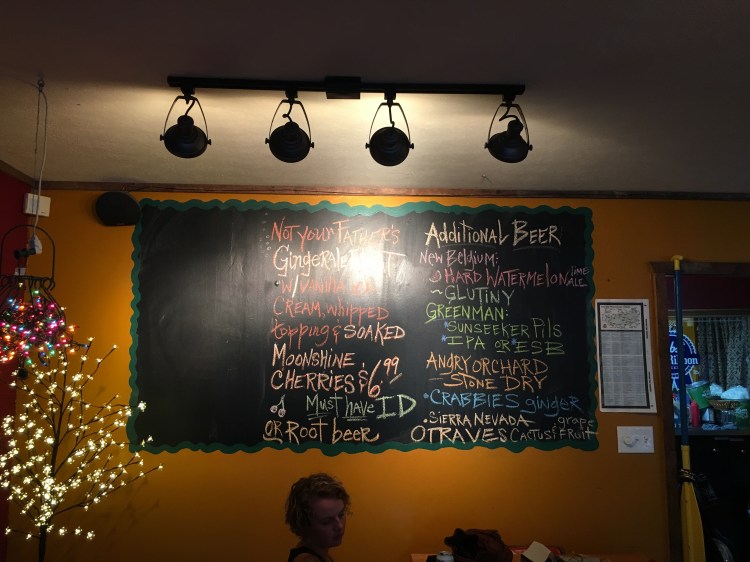 Not your FATHER'S
Gingerale
w/ Vanilla ice
CREAM, whipped
topping & SOAKED
MOONSHINE
CHERRIES $6.99
MUST HAVE ID
OR Root beer
ADDITIONAL BEER
NEW BELGIUM:
HARD WATERMELON LIME ALE
~ GLUTINY
GREENMAN:
*SUNSEEKER PILS
*IPA OR *ESB
ANGRY ORCHARD
STONE DRY
•CRABBIES ginger
•SIERRA NEVADA
OTRAVES CACTUS & grape FRUIT